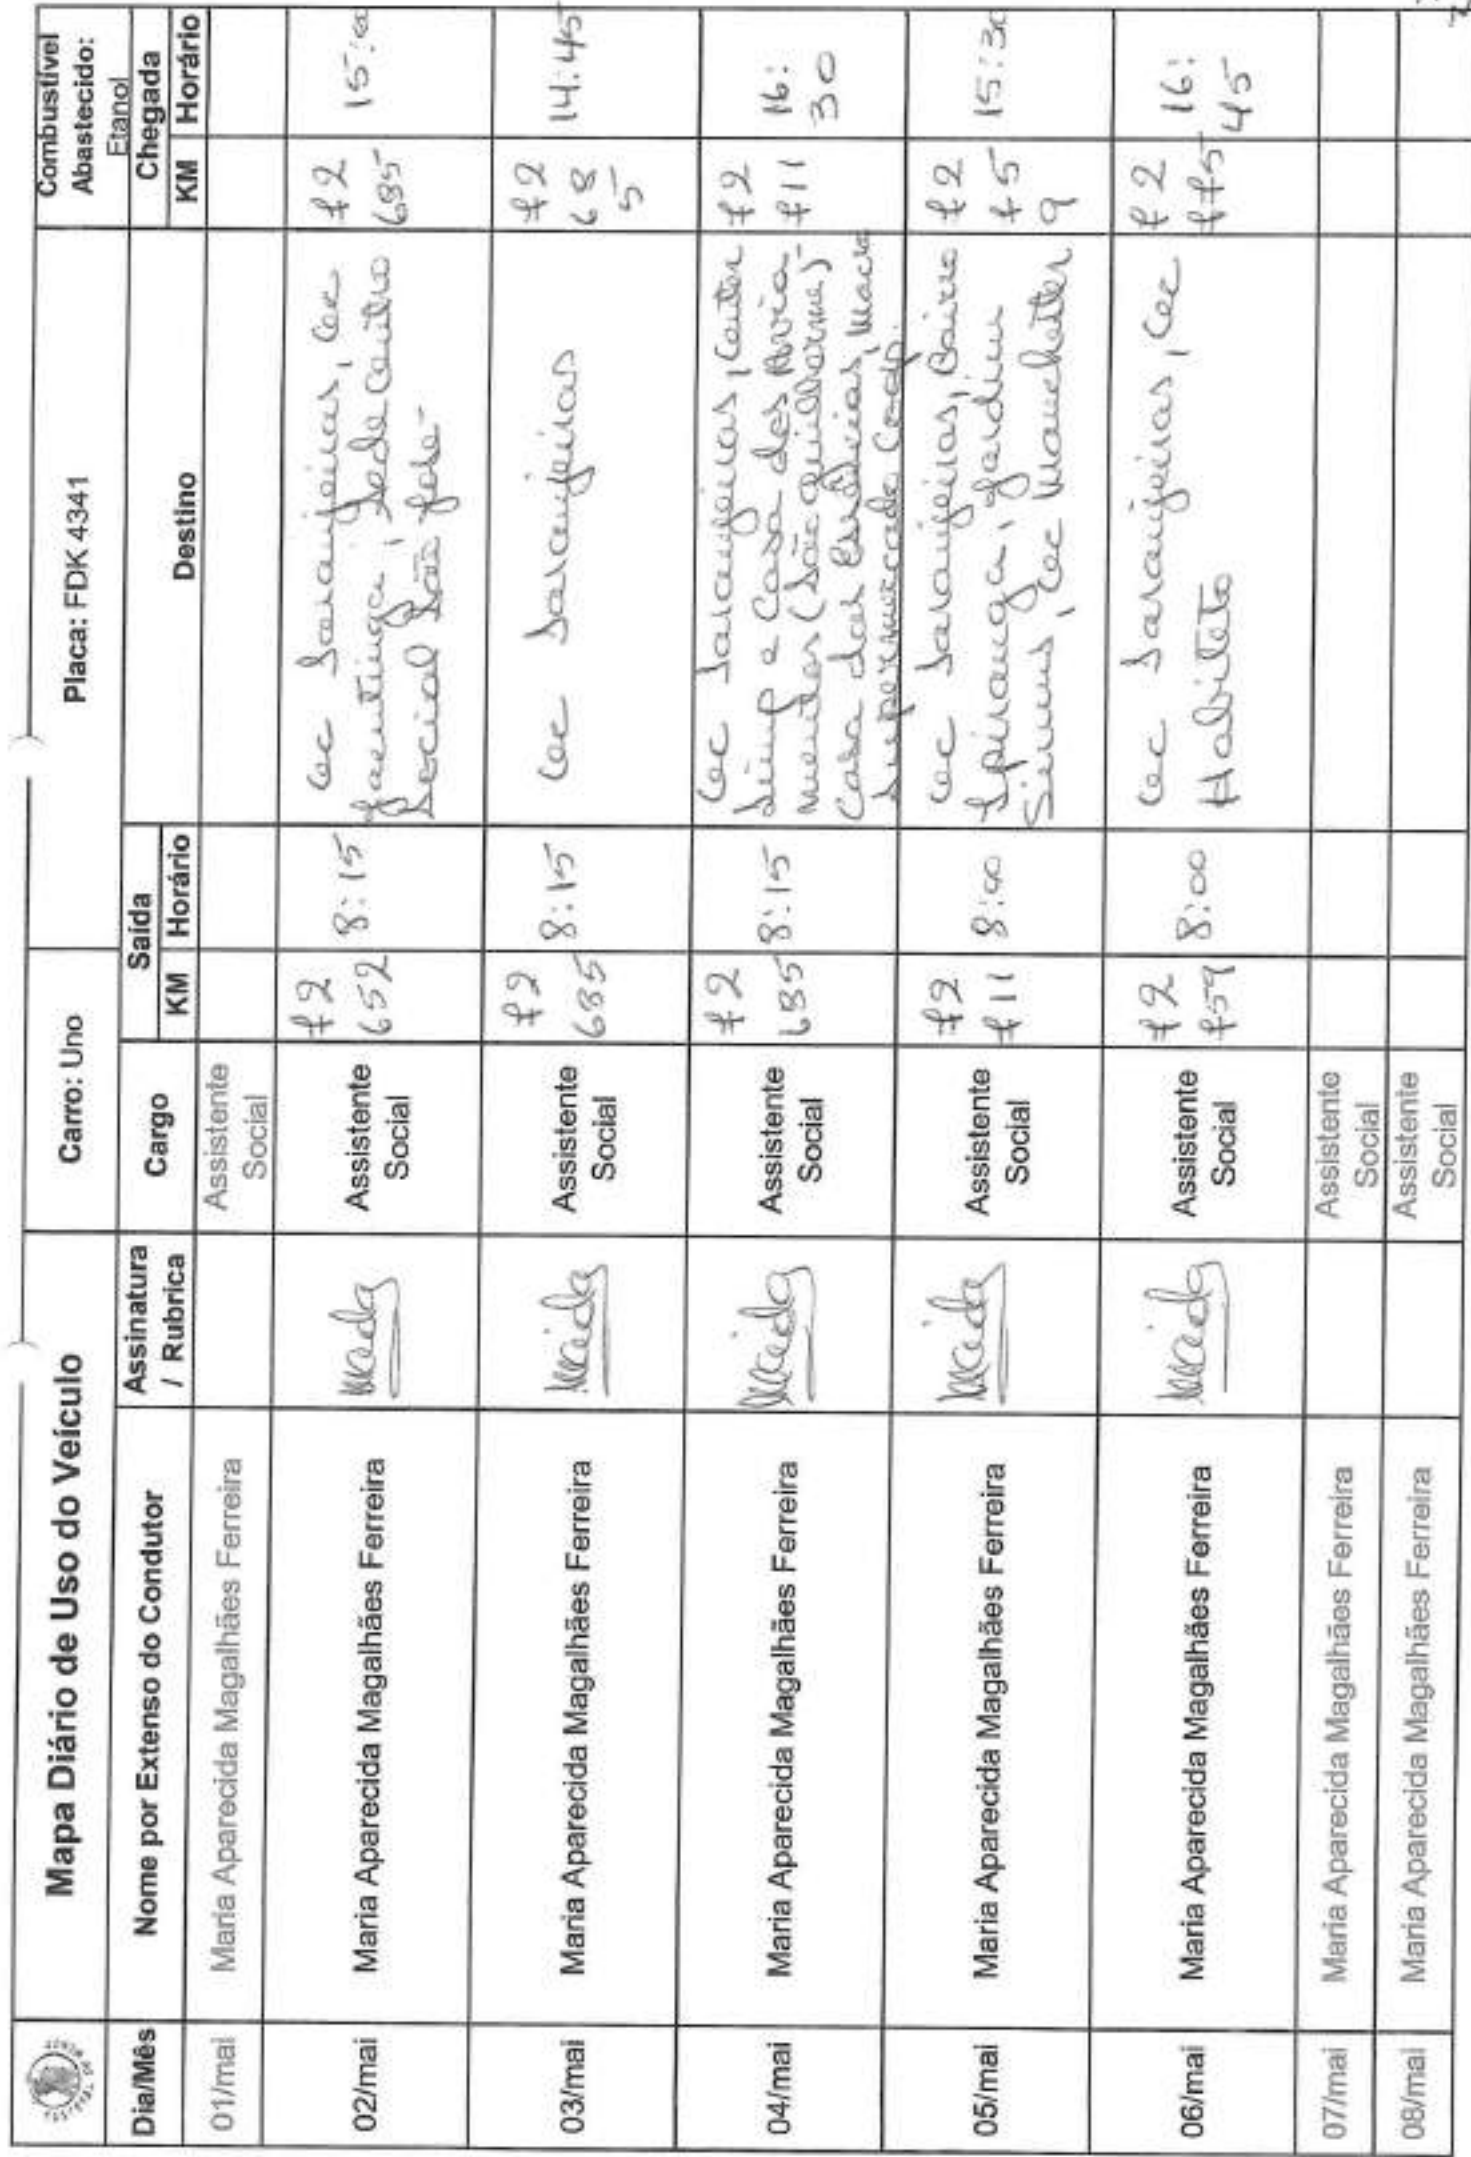 Mapa Diário de Uso do Veículo
Carro: Uno
Placa: FDK 4341
Combustível
Abastecido:
Etanol
Dia/Mês
Nome por Extenso do Condutor
Assinatura
/ Rubrica
Cargo
Saída
KM Horário
Destino
Chegada
KM Horário
01/mai Maria Aparecida Magalhães Ferreira Assistente
Social
02/mai Maria Aparecida Magalhães Ferreira Assistente
Social
72
652
8:15
Cec Laranjeiras, Cec
Jacutinga, Sede Centro
Social São José
72
685
15:00
03/mai Maria Aparecida Magalhães Ferreira Assistente
Social
72
685
8:15
Cec Laranjeiras
72
68
5
14:45
04/mai Maria Aparecida Magalhães Ferreira Assistente
Social
72
685
8:15
Cec Laranjeiras, Center
e Casa dos Avia
mentos (São Guilherme),
Casa das Essências, Macro
Supermercado Coop.
72
711
16:
30
05/mai Maria Aparecida Magalhães Ferreira Assistente
Social
72
711
8:00
Cec Laranjeiras, Bairro
Ipiranga, Jardim
Simus, Cec Manchester
72
75
9
15:30
06/mai Maria Aparecida Magalhães Ferreira Assistente
Social
72
759
8:00
Cec Laranjeiras, Cec
Habiteto
72
775
16:
45
07/mai Maria Aparecida Magalhães Ferreira Assistente
Social
08/mai Maria Aparecida Magalhães Ferreira Assistente
Social